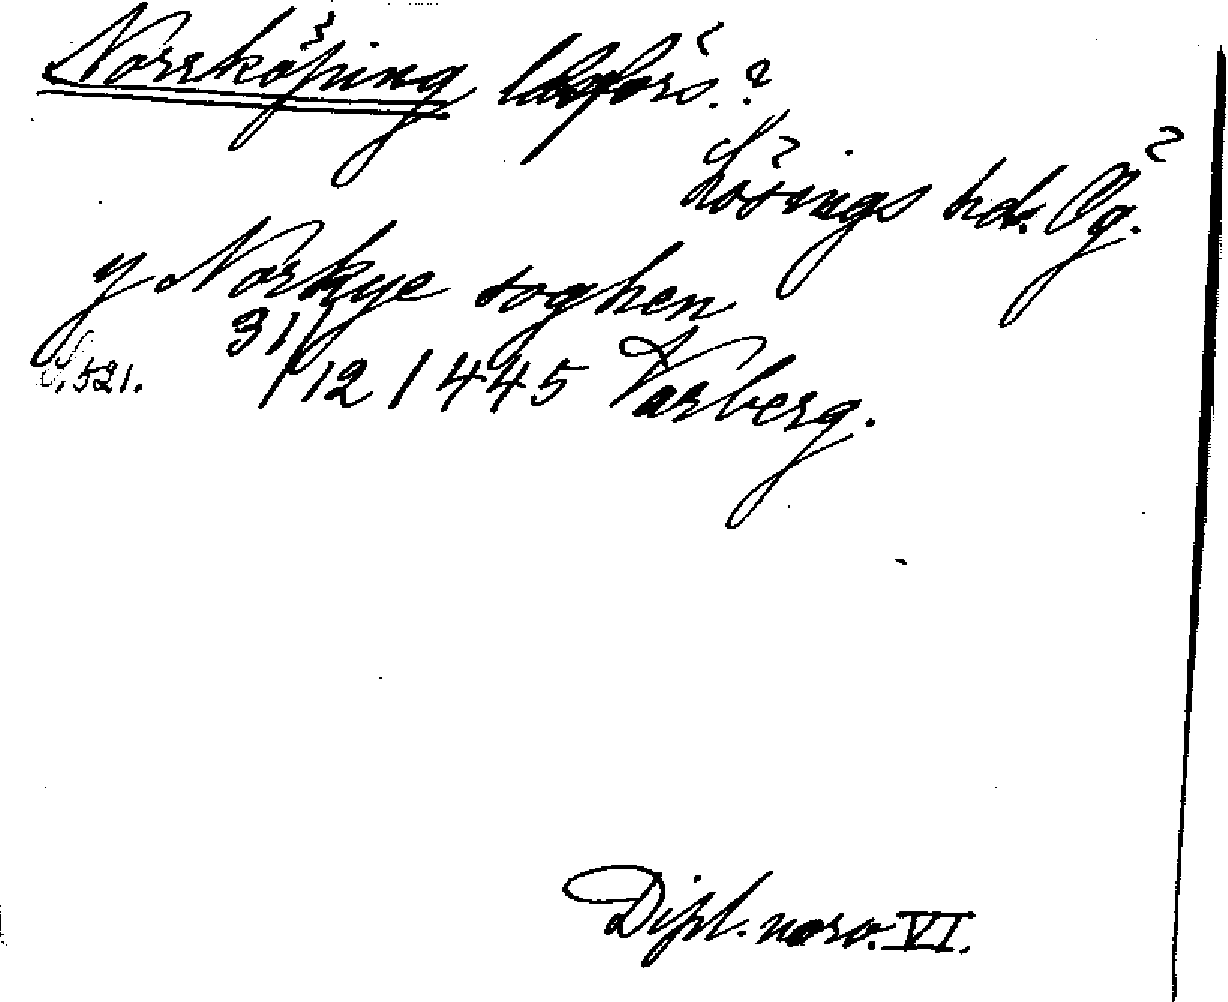 Norrköping lkförs.?
Lösings hd. Ög.
y Norkye soghen
S. 521. 31/12 1445 Varberg.
Dipl. norv. VI.